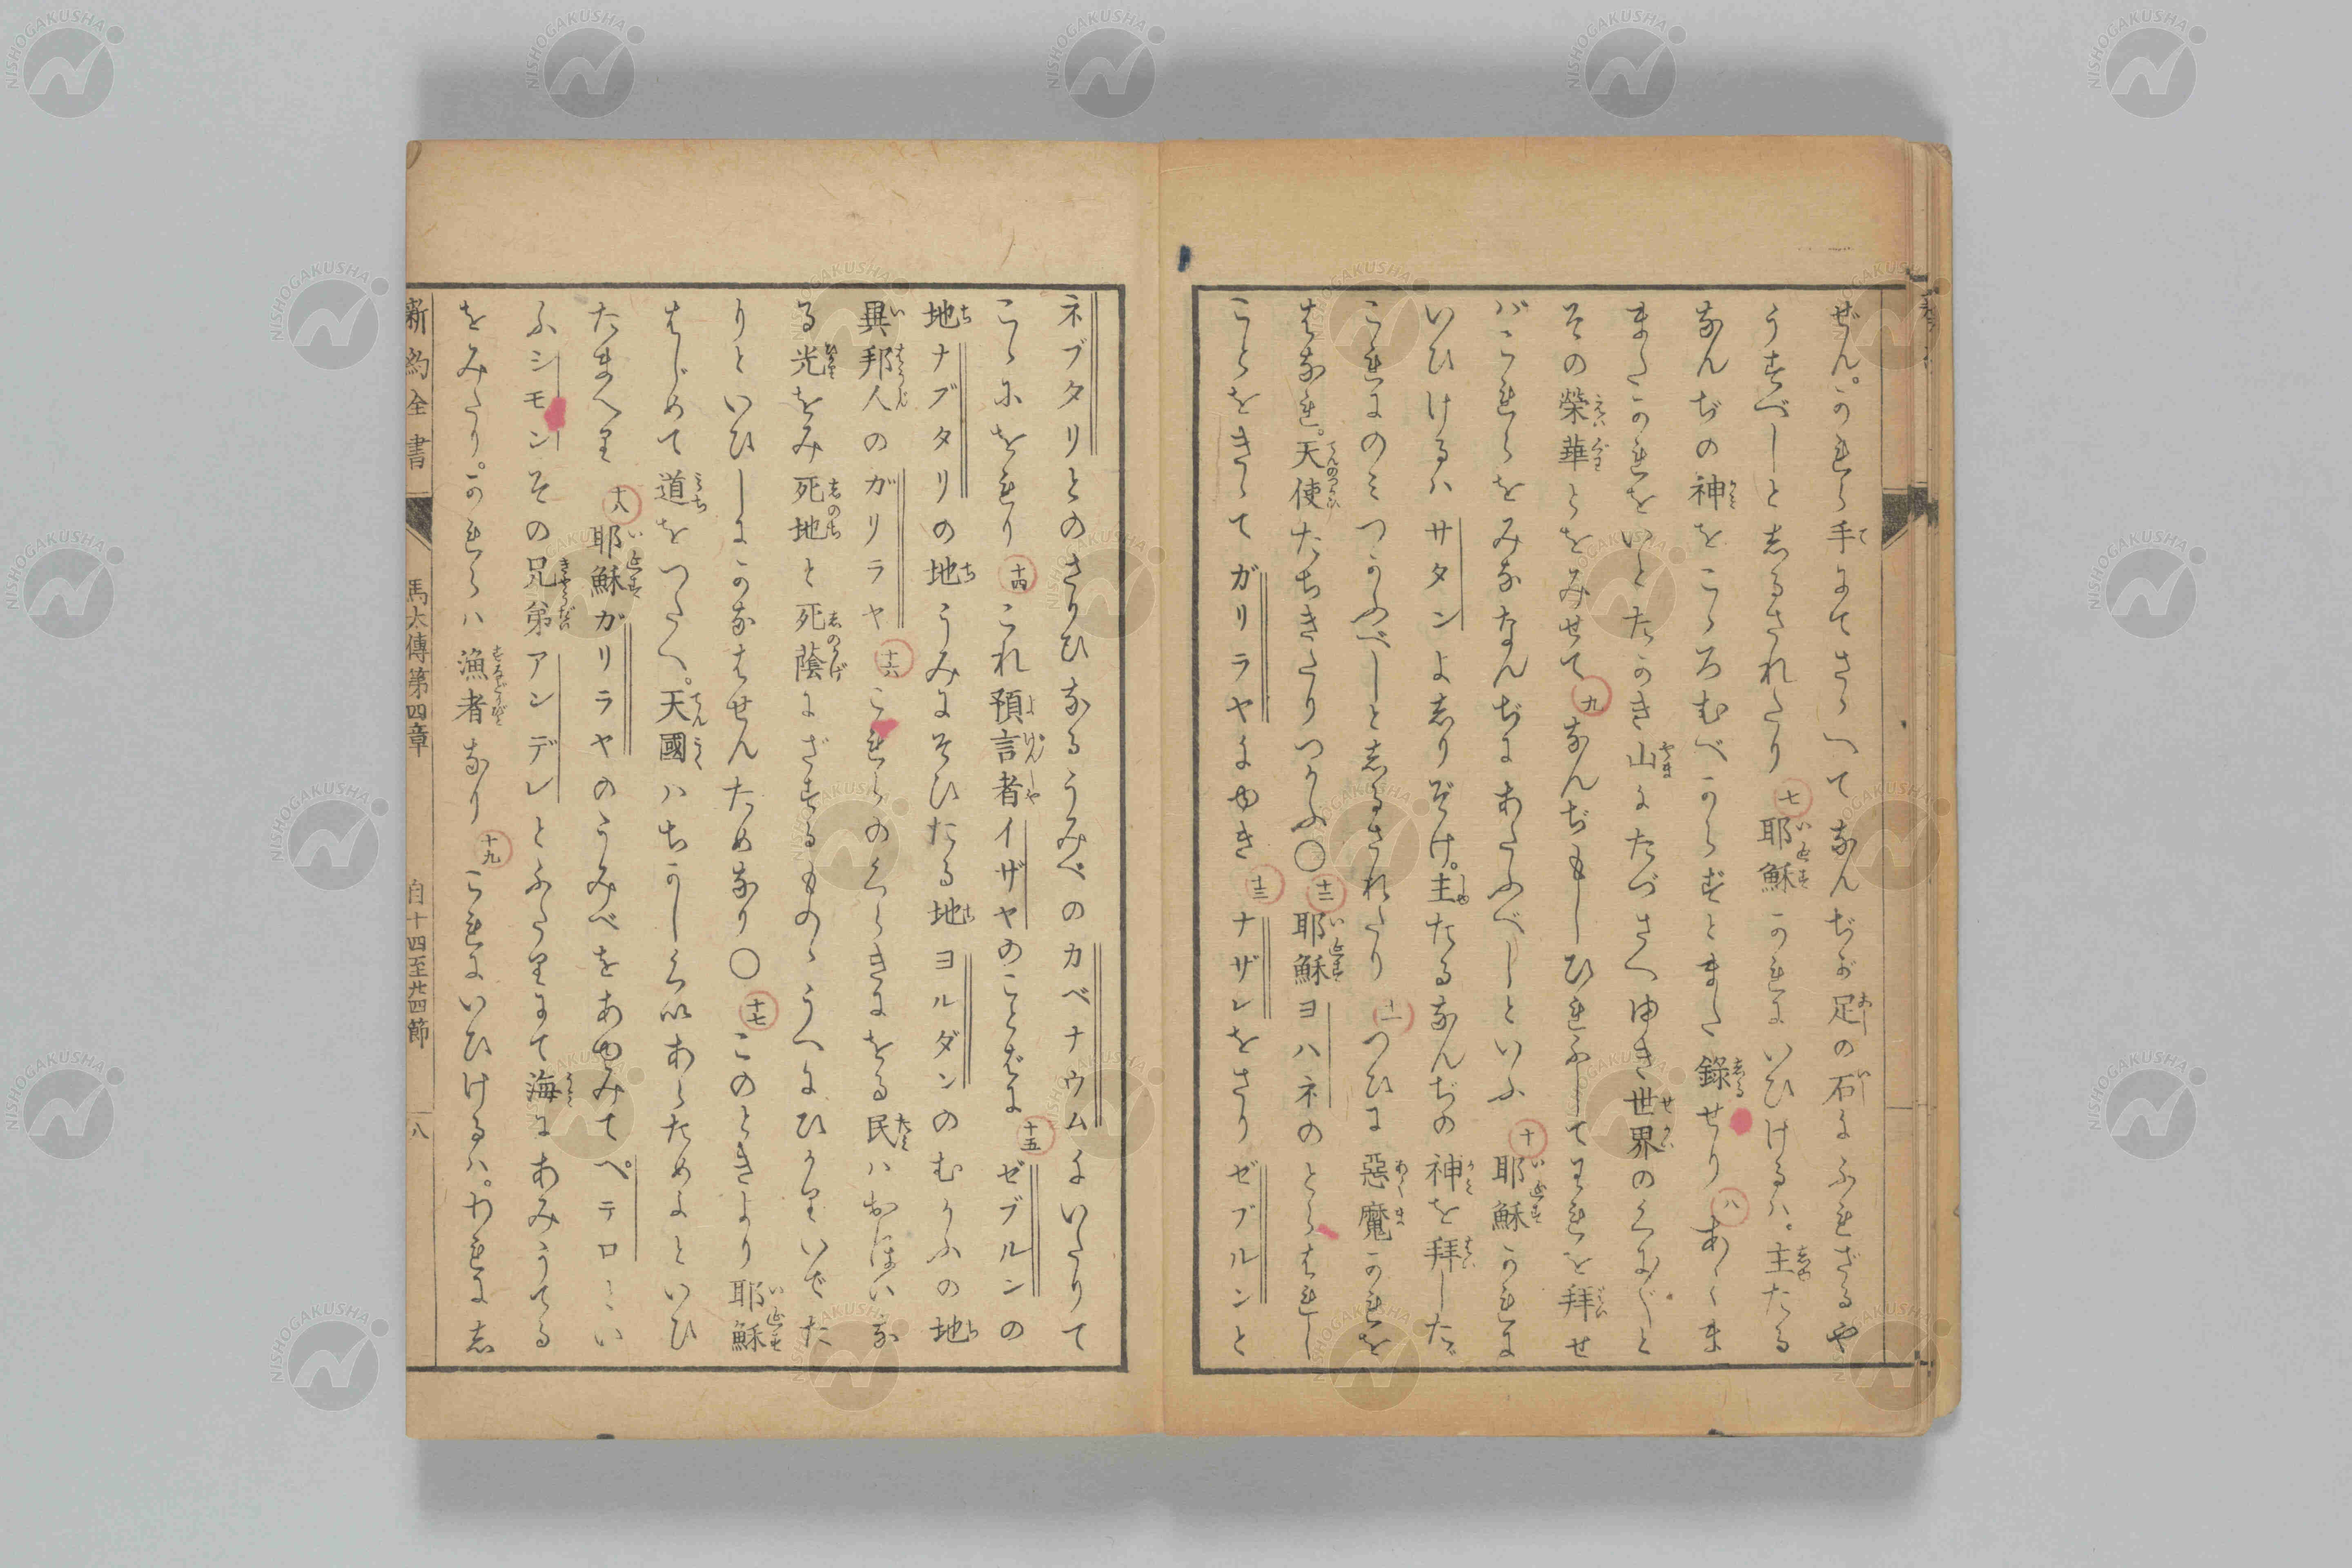 ぜん。かれら手にてさゝへてなんぢが足の石にふれざるや
うすべしとしるされたり 七 耶穌かれにいひけるハ。主たる
なんぢの神をこゝろむべからずとまた錄せり 八 あくま
またかれをいとたかき山にたづさへゆき世界のくに〴〵と
その榮華とをみせて 九 なんぢもしひれふしてわれを拜せ
バこれらをみななんぢにあたふべしといふ 十 耶穌かれに
いひけるハサタンよしりぞけ。主たるなんぢの神を拜しただ
これにのミつかふべしとしるされたり 十一 つひに惡魔かれを
はなれ。天使たちきたりつかふ〇 十二 耶穌ヨハネのとらはれし
ことをきゝてガリラヤにゆき 十三 ナザレをさりゼブルンと
ネブタリとのさかひなるうみべのカペナウムにいたりて
こゝにをれり 十四 これ預言者イザヤのことばに 十五 ゼブルンの
地ナブタリの地うみにそひたる地ヨルダンのむかふの地
異邦人のガリラヤ 十六 これらのくらきにをる民ハおほいな
る光をみ死地と死陰にざするものゝうへにひかりいでた
りといひしにかなはせんためなり〇 十七 このときより耶穌
はじめて道をつたへ。天國ハちかしくいあらためよといひ
たまへり 十八 耶穌ガリラヤのうみべをあゆみてペテロとい
ふシモンその兄弟アンデレとふたりにて海にあみうてる
をみたり。かれらハ漁者なり 十九 これにいひけるハ。われにし
新約全書 馬太傳第四章 自十四至廿四節 八